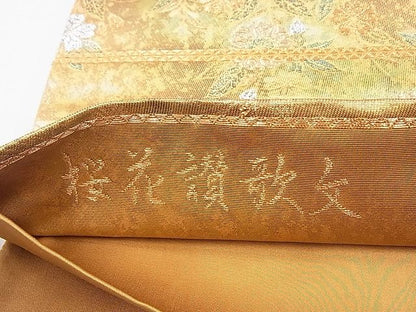 桜花讃歌文